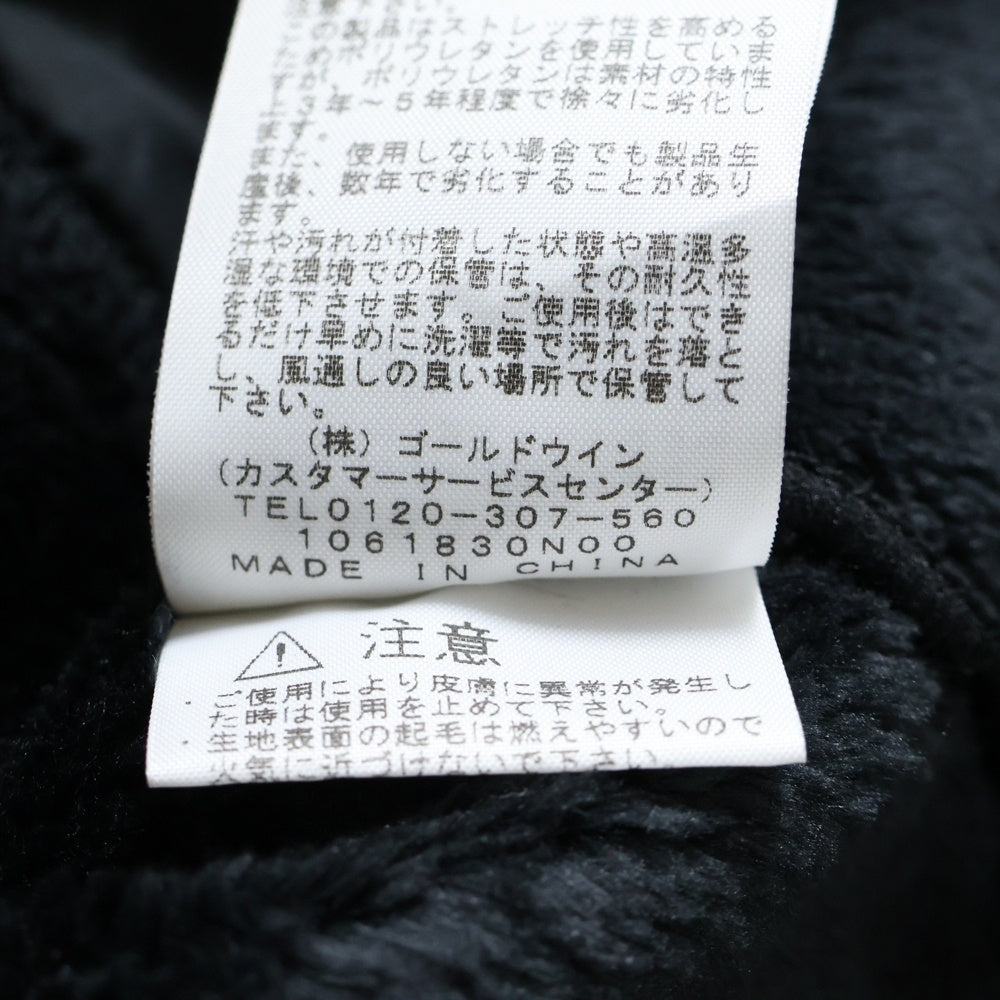 注意下さい。
この製品はストレッチ性を高める
ためポリウレタンを使用していま
すが、ポリウレタンは素材の特性
上3年～5年程度で徐々に劣化し
ます。
また、使用しない場合でも製品生
産後、数年で劣化することがあり
ます。
汗や汚れが付着した状態や高温多
湿な環境での保管は、その耐久性
を低下させます。ご使用後はでき
るだけ早めに洗濯等で汚れを落と
し、風通しの良い場所で保管して
下さい。
(株)ゴールドウイン
(カスタマーサービスセンター)
TEL0120-307-560
1061830N00
MADE IN CHINA
注意
・ご使用により皮膚に異常が発生し
た時は使用を止めて下さい。
・生地表面の起毛は燃えやすいので
火気に近づけないで下さい。